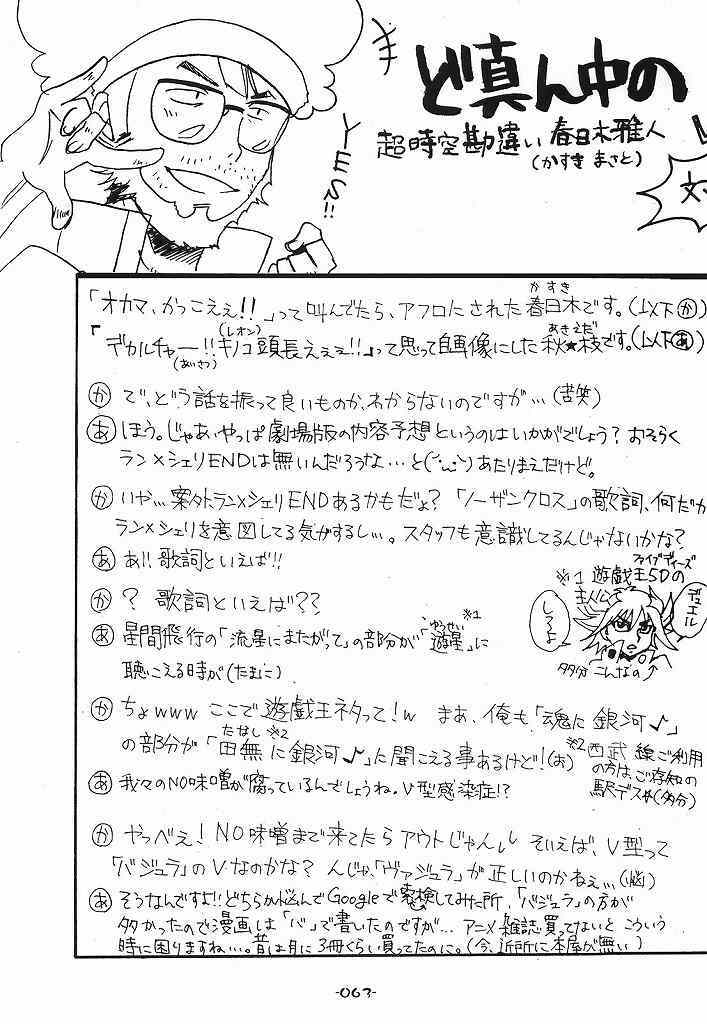 ど真ん中の
超時空勘違い 春日木雅人
(かすき まさと)
イエス!!
文
かすき
「オカマ、かっこえぇ!!」って叫んでたら、アフロにされた春日木です。(以下か)
(レオン) あきえだ
「デカルチャー!!キノコ頭長えぇぇ!!」って思って自画像にした秋★枝です。(以下あ)
(あいさつ)
か で、どう話を振って良いものか、わからないのですが…(苦笑)
あ ほう。じゃあ、やっぱ劇場版の内容予想というのはいかがでしょう?おそらく
ラン×シェリENDは無いんだろうな…と(´・ω・`)あたりまえだけど。
か いや…案外ラン×シェリENDあるかもだよ?「ノーザンクロス」の歌詞、何だか
ラン×シェリを意図してる気がするし…。スタッフも意識してるんじゃないかな?
あ あ!!歌詞といえば!!
か ? 歌詞といえば??
ファイブディーズ
※1 遊戯王5Dの
主人公
デュエル
しろよ
多分こんなの
ゆうせい ※1
あ 星間飛行の「流星にまたがって」の部分が「遊星」に
聴こえる時が(たまに)
か ちょwww ここで遊戯王ネタって!w まあ、俺も「魂に銀河♪」
たなし ※2
の部分が「田無に銀河♪」に聞こえる事あるけど!(お)
※2 西武線ご利用
の方はご存知の
駅デス★(多分)
あ 我々のNO味噌が腐っているんでしょうね。V型感染症!?
か やっべぇ!NO味噌まで来てたらアウトじゃんし そいえば、V型って
「バジュラ」のVなのかな? んじゃ、「ヴァジュラ」が正しいのかねぇ…(悩)
あ そうなんですよ!!どちらか悩んでGoogleで検索してみた所、「バジュラ」の方が
多かったので漫画は「バ」で書いたのですが… アニメ雑誌買ってないとこういう
時に困りますねぃ…。昔は月に3冊くらい買ってたのに。(今、近所に本屋が無い)
-063-